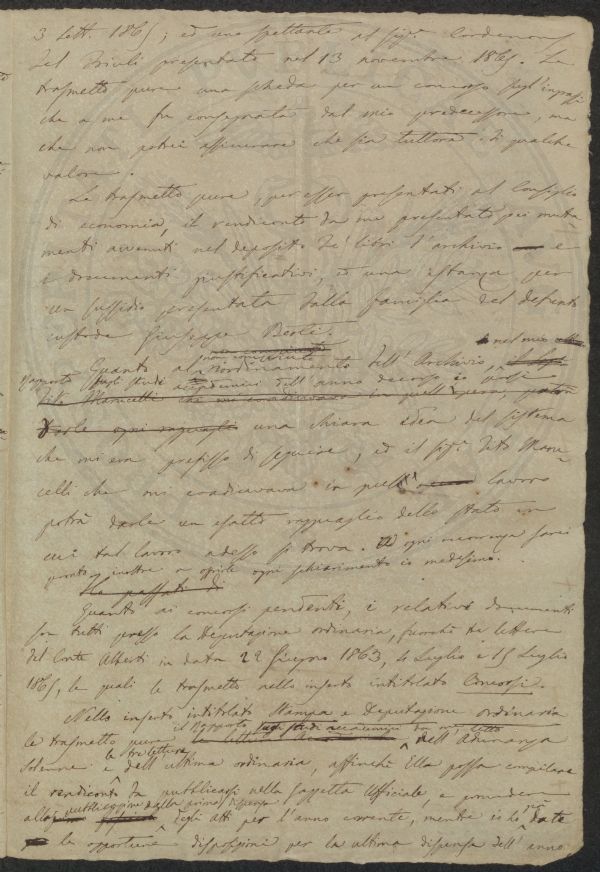 3 Sett. 1865; ed uno spettante al Sig.r Cordenons
del Friuli presentato nel 13 novembre 1865. Le
trasmetto pure una scheda per un concorso degl'ingrassi
che a me fu consegnata dal mio predecessore, ma
che non potrei assicurare che sia tuttora di qualche
valore.
Le trasmetto pure, per esser presentati al Consiglio
di economia, il rendiconto da me presentato pei muta
menti avvenuti nel deposito de' libri l'archivio e
i documenti giustificativi, ed una istanza per
un sussidio presentata dalla famiglia del defunto
custode Giuseppe Berti.
nel mio
Quanto al riordinamento dell'Archivio,
rapporto sugli studi accademici dell'anno decorso io diedi
Tito Marucelli che mi coadiuvava in quell'opera, potrà
Darle ogni ragguaglio una chiara idea del sistema
che mi era prefisso di seguire, ed il sig.r Tito Maru
celli che mi coadiuvava in quel lavoro
potrà darle un esatto ragguaglio dello stato in
cui tal lavoro adesso si trova. Ad ogni occorrenza sarei
pronto inoltre a offrirle ogni schiarimento io medesimo.
Ho passati di
Quanto ai concorsi pendenti, i relativi documenti
son tutti presso la Deputazione ordinaria, fuorchè tre lettere
del Conte Alberti in data 22 Giugno 1863, 4 Luglio e 15 Luglio
1865, le quali le trasmetto nello inserto intitolato Concorsi.
Nello inserto intitolato Stampa e Deputazione ordinaria
le trasmetto pure il Rapporto sugli studi accademici da me letto
nell'Adunanza
solenne e le tre letture dell'ultima ordinaria, affinchè Ella possa compilare
il rendiconto da pubblicarsi nella Gazzetta Ufficiale, e provvedere
alla pubblicazione della prima dispensa degli atti per l'anno corrente, mentre io ho già date
le opportune disposizioni per la ultima dispensa dell'anno